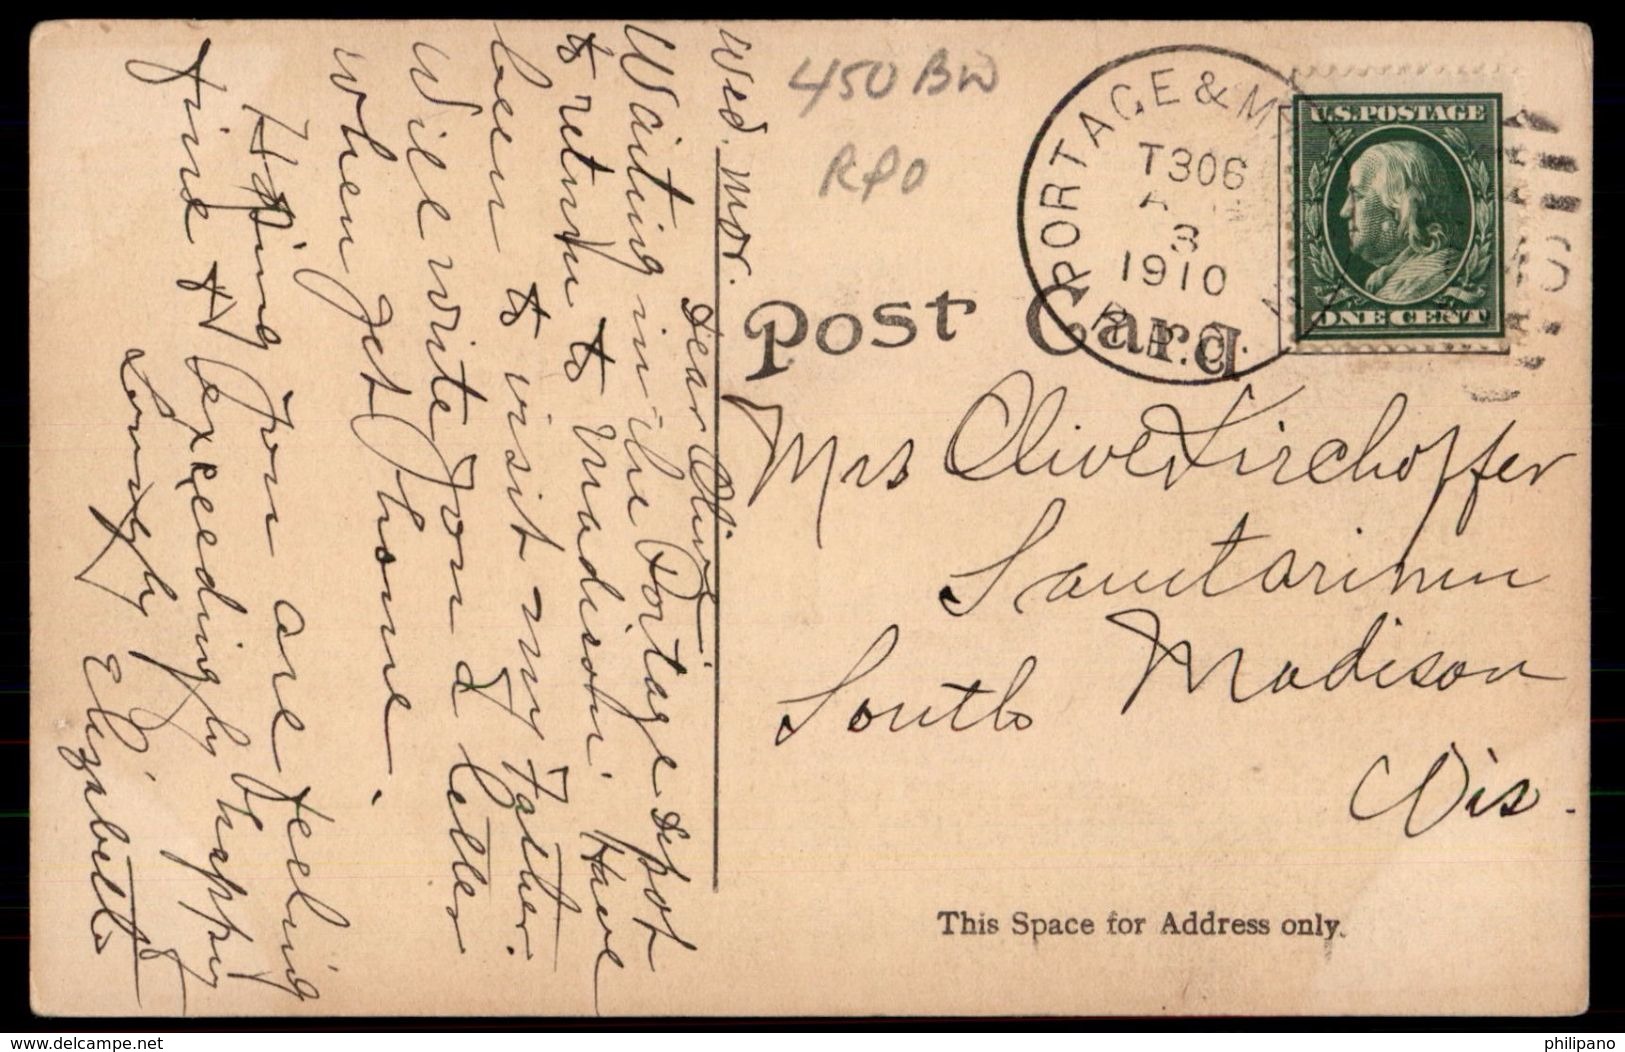 Wed. Mor.
Dear Olive
Waiting in the Portage Depot
to return to Madison Have
been to visit my Father.
Will write you a letter
when get home.
Hoping you are feeling
fine & exceedingly happy
Lovingly Elizabeth
450 BW
RPO
PORTAGE & M
T306
3
1910
R.P.O.
U.S. POSTAGE
ONE CENT
Post Card
Mrs Olive Kirchoffer
Sanitarium
South Madison
Wis.
This Space for Address only.
www.delcampe.net
philipano